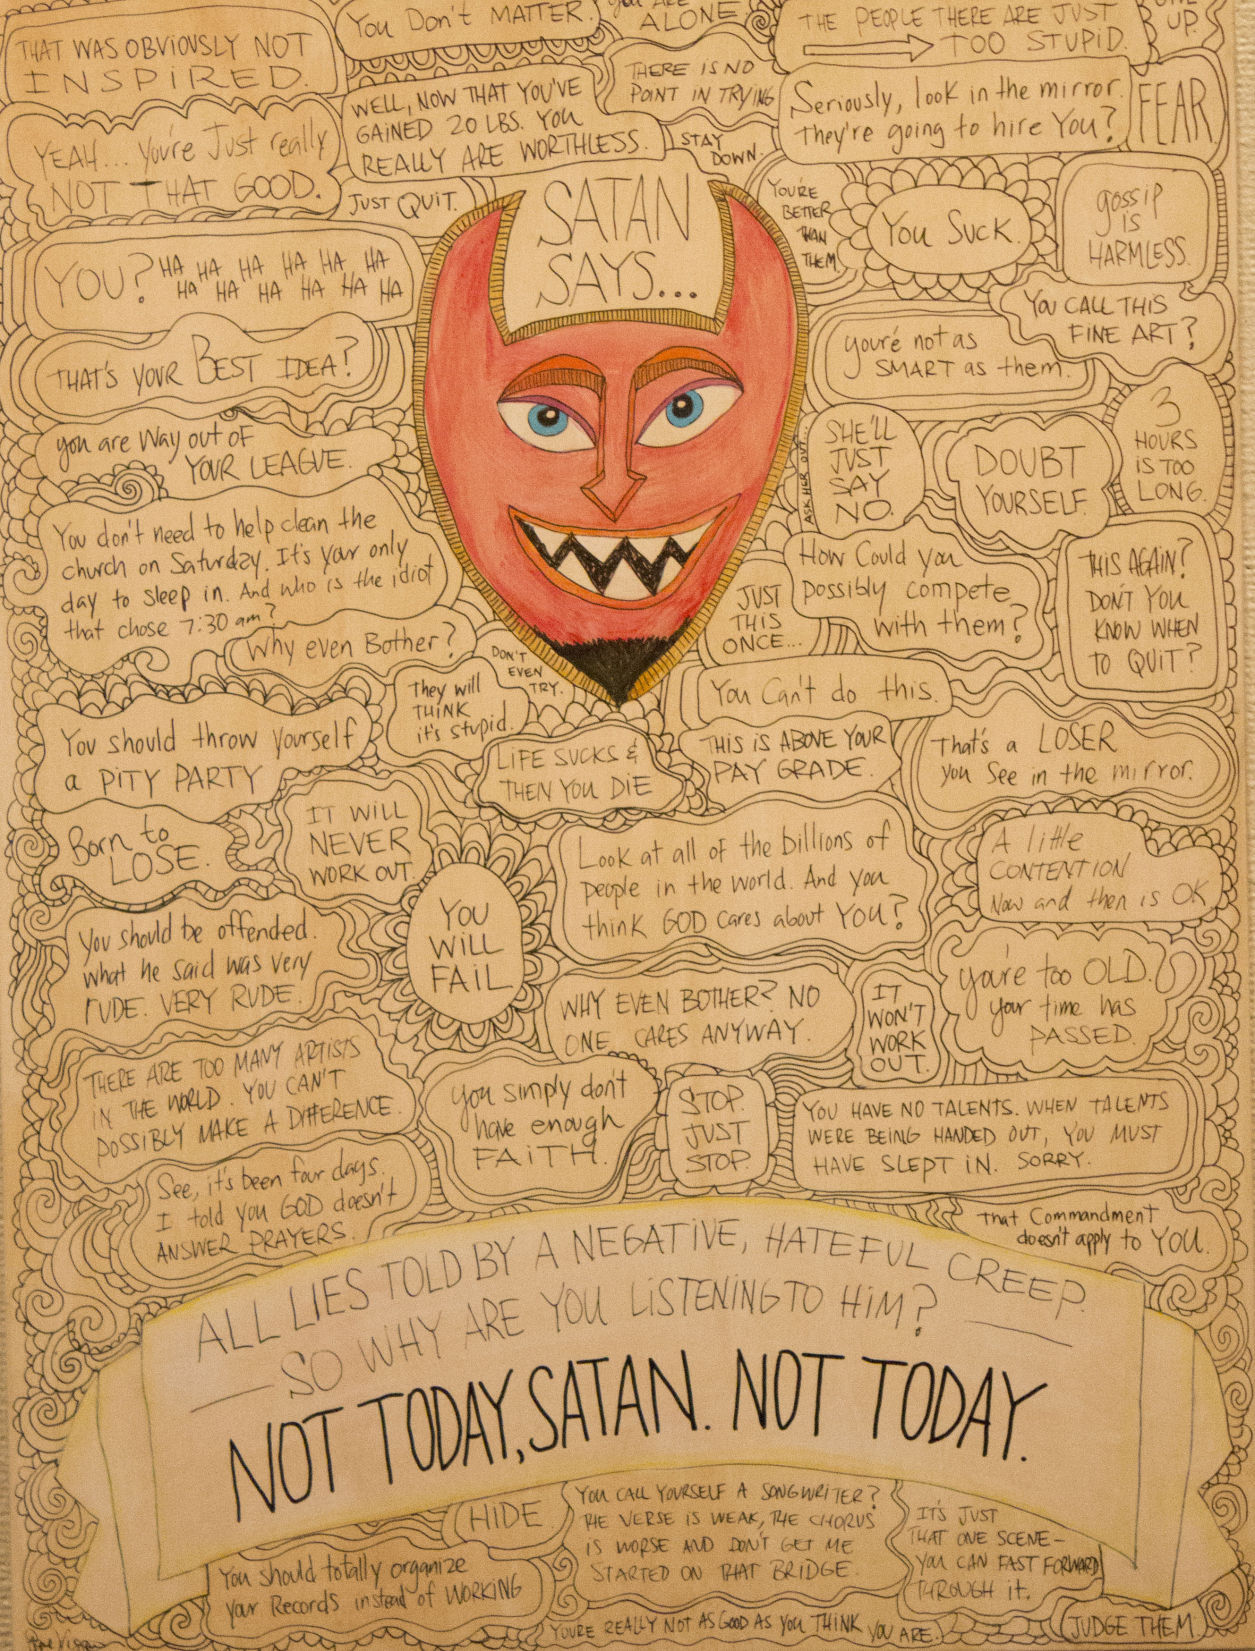 THAT WAS OBVIOUSLY NOT
INSPIRED.
You Don't MATTER.
you ARE
ALONE
THE PEOPLE THERE ARE JUST
TOO STUPID.
UP.
YEAH... You're Just really
NOT THAT GOOD.
WELL, NOW THAT YOU'VE
GAINED 20 LBS. YOU
REALLY ARE WORTHLESS.
THERE IS NO
POINT IN TRYING
Seriously, look in the mirror.
They're going to hire YOU?
FEAR.
STAY
DOWN.
JUST QUIT.
SATAN
SAYS...
YOU'RE
BETTER
THAN
THEM
You Suck.
gossip
IS
HARMLESS.
YOU? HA HA HA HA HA HA
HA HA HA HA HA HA
YOU CALL THIS
FINE ART?
THAT'S YOUR BEST IDEA?
you're not as
SMART as them.
you are Way out OF
YOUR LEAGUE.
ASK HER OUT...
SHE'LL
JUST
SAY
NO.
DOUBT
YOURSELF.
3
HOURS
IS TOO
LONG.
You don't need to help clean the
church on Saturday. It's your only
day to sleep in. And who is the idiot
that chose 7:30 am?
Why even Bother?
JUST
THIS
ONCE...
How Could you
possibly compete
with them?
THIS AGAIN?
DON'T YOU
KNOW WHEN
TO QUIT?
DON'T
EVEN
TRY.
They will
THINK
it's stupid.
You Can't do this.
You should throw yourself
a PITY PARTY
LIFE SUCKS &
THEN YOU DIE
THIS IS ABOVE YOUR
PAY GRADE.
That's a LOSER
you See in the mirror.
Born to
LOSE.
IT WILL
NEVER
WORK OUT.
YOU
WILL
FAIL
Look at all of the billions of
people in the world. And you
think GOD cares about YOU?
A little
CONTENTION
Now and then is OK
You should be offended.
what he said was very
RUDE. VERY RUDE.
WHY EVEN BOTHER? NO
ONE CARES ANYWAY.
IT
WON'T
WORK
OUT.
you're too OLD.
your time has
PASSED.
THERE ARE TOO MANY ARTISTS
IN THE WORLD. YOU CAN'T
POSSIBLY MAKE A DIFFERENCE.
you simply don't
have enough
FAITH.
STOP.
JUST
STOP.
YOU HAVE NO TALENTS. WHEN TALENTS
WERE BEING HANDED OUT, YOU MUST
HAVE SLEPT IN. SORRY.
See, it's been four days.
I told you GOD doesn't
ANSWER PRAYERS.
That Commandment
doesn't apply to YOU.
ALL LIES TOLD BY A NEGATIVE, HATEFUL CREEP.
SO WHY ARE YOU LISTENING TO HIM?
NOT TODAY, SATAN. NOT TODAY.
HIDE
YOU CALL YOURSELF A SONGWRITER?
THE VERSE IS WEAK, THE CHORUS
IS WORSE AND DON'T GET ME
STARTED ON THAT BRIDGE.
IT'S JUST
THAT ONE SCENE-
YOU CAN FAST FORWARD
THROUGH it.
You should totally organize
your Records instead of WORKING
YOU'RE REALLY NOT AS GOOD AS YOU THINK YOU ARE.
JUDGE THEM